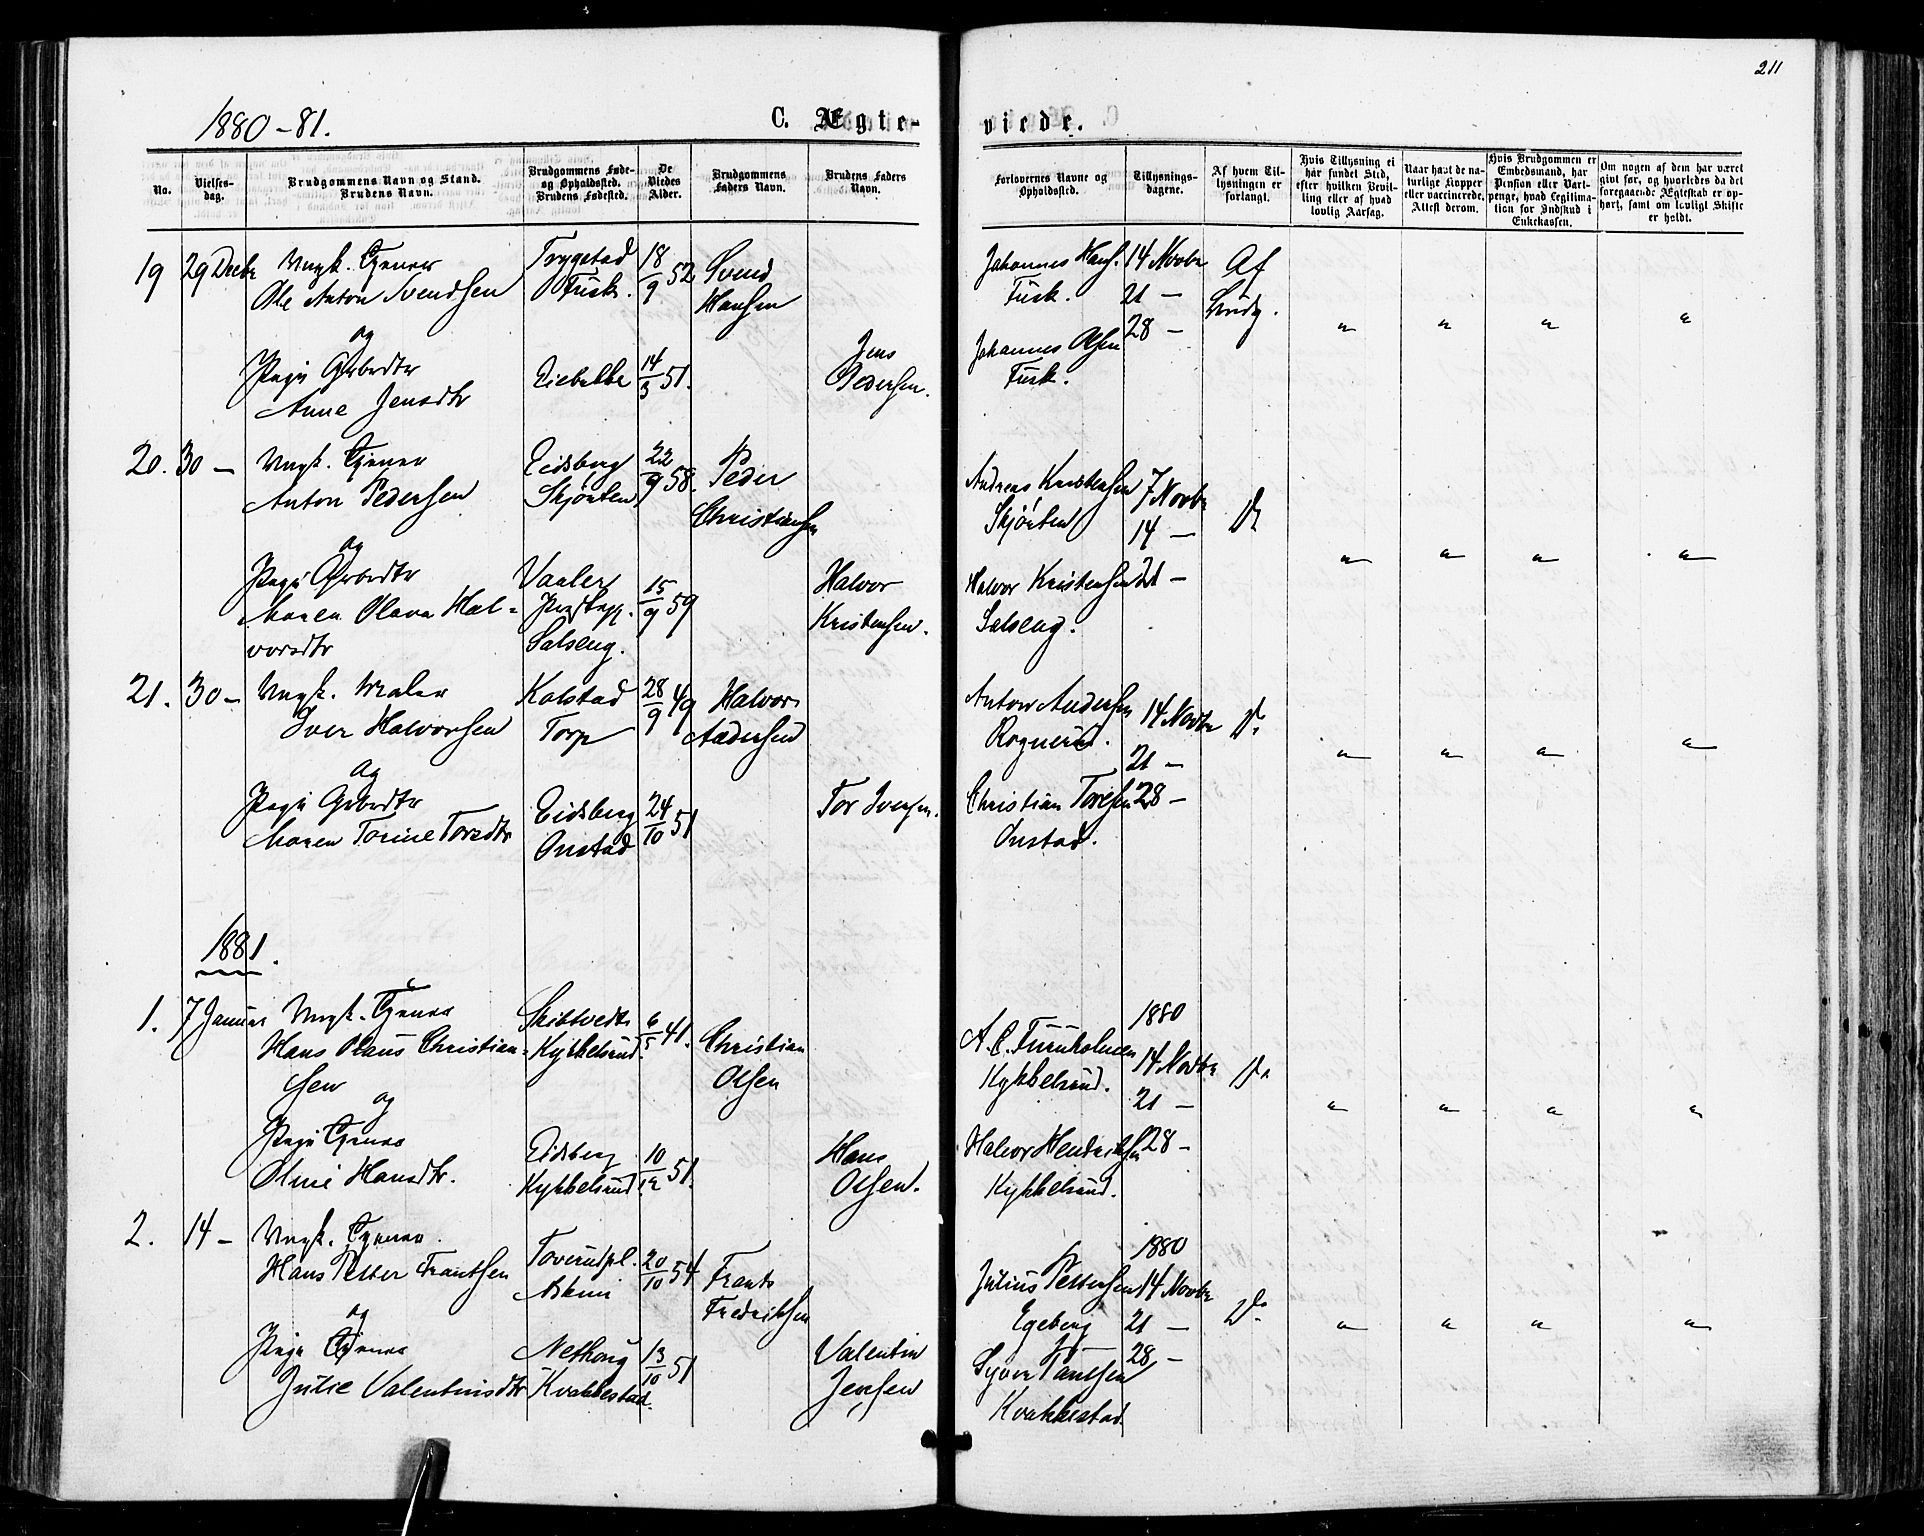 211
1880-81.
C. Ægte-
viede.
No.
Vielses-
dag.
Brudgommens Navn og Stand.
Brudens Navn.
Brudgommens Føde-
og Opholdssted.
Brudens Fødested.
De
Viedes
Alder.
Brudgommens
Faders Navn.
Brudens Faders
Navn.
Forlovernes Navne og
Opholdssted.
Tillysnings-
dagene.
Af hvem Til-
lysningen er
forlangt.
Hvis Tillysning ei
har fundet Sted,
efter hvilken Bevil-
ling eller af hvad
lovlig Aarsag.
Naar havt de na-
turlige Kopper
eller vaccinerede.
Attest derom.
Hvis Brudgommen er
Embedsmand, har
Pension eller Vart-
penge, hvad Legitima-
tion for Indskud i
Enkekassen.
Om nogen af dem har været
gift før, og hvorledes da det
foregaaende Ægteskab er op-
hørt, samt om lovligt Skifte
er holdt.
19 29 Decbr Ungk. Tjener Trygstad 18/9 52 Svend Johannes Hans. 14 Novbr Af
Ole Anton Svendsen Fusk. Hansen Fusk. 21 — Brudg.
og 28 —
Pige Arbedtr 14/3 51. Jens Johannes Olsen
Anne Jensdtr Pedersen. Fusk.
20. 30 — Ungk. Tjener Eidsberg 22/9 58. Peder Andreas Kristensen 7 Novbr Do
Anton Pedersen Skjørten Christiansen Skjørten 14 —
og
Pige Arbedtr Vaaler 15/9 59 Halvor Halvor Kristensen 21 —
Maren Olava Hal- Præstegj. Kristensen. Salseng.
vorsdtr Salseng.
21. 30 — Ungk. Maler Kolstad 28/9 49 Halvor Anton Andersen 14 Novbr Do
Iver Halvorsen Torp Andersen Rognerud. 21 —
og
Pige Arbedtr Eidsberg 24/10 51 Tor Iversen. Christian Toresen 28 —
Maren Torine Toresdtr Onstad Onstad.
1881.
1. 7 Januar Ungk. Tjener Skibtvedt 6/5 41. Christian A. C. Furuholmen 1880
Hans Olaus Christian- Kykkelsrud Olsen Kykkelsrud. 14 Novbr Do
sen 21 —
og
Pige Tjener Eidsberg 10/12 51. Hans Halvor Hendriksen 28 —
Oline Hansdtr. Kykkelsrud Olsen. Kykkelsrud.
2. 14 — Ungk. Tjener Toverudpl. 20/10 54 Frants Julius Pettersen 1880
Hans Petter Frantsen Askim Fredriksen Egeberg 14 Novbr Do
og 21 —
Pige Tjener 13/10 51 Valentin 28 —
Julie Valentinsdtr Kvakkestad. Jensen Syver
Kvakkestad